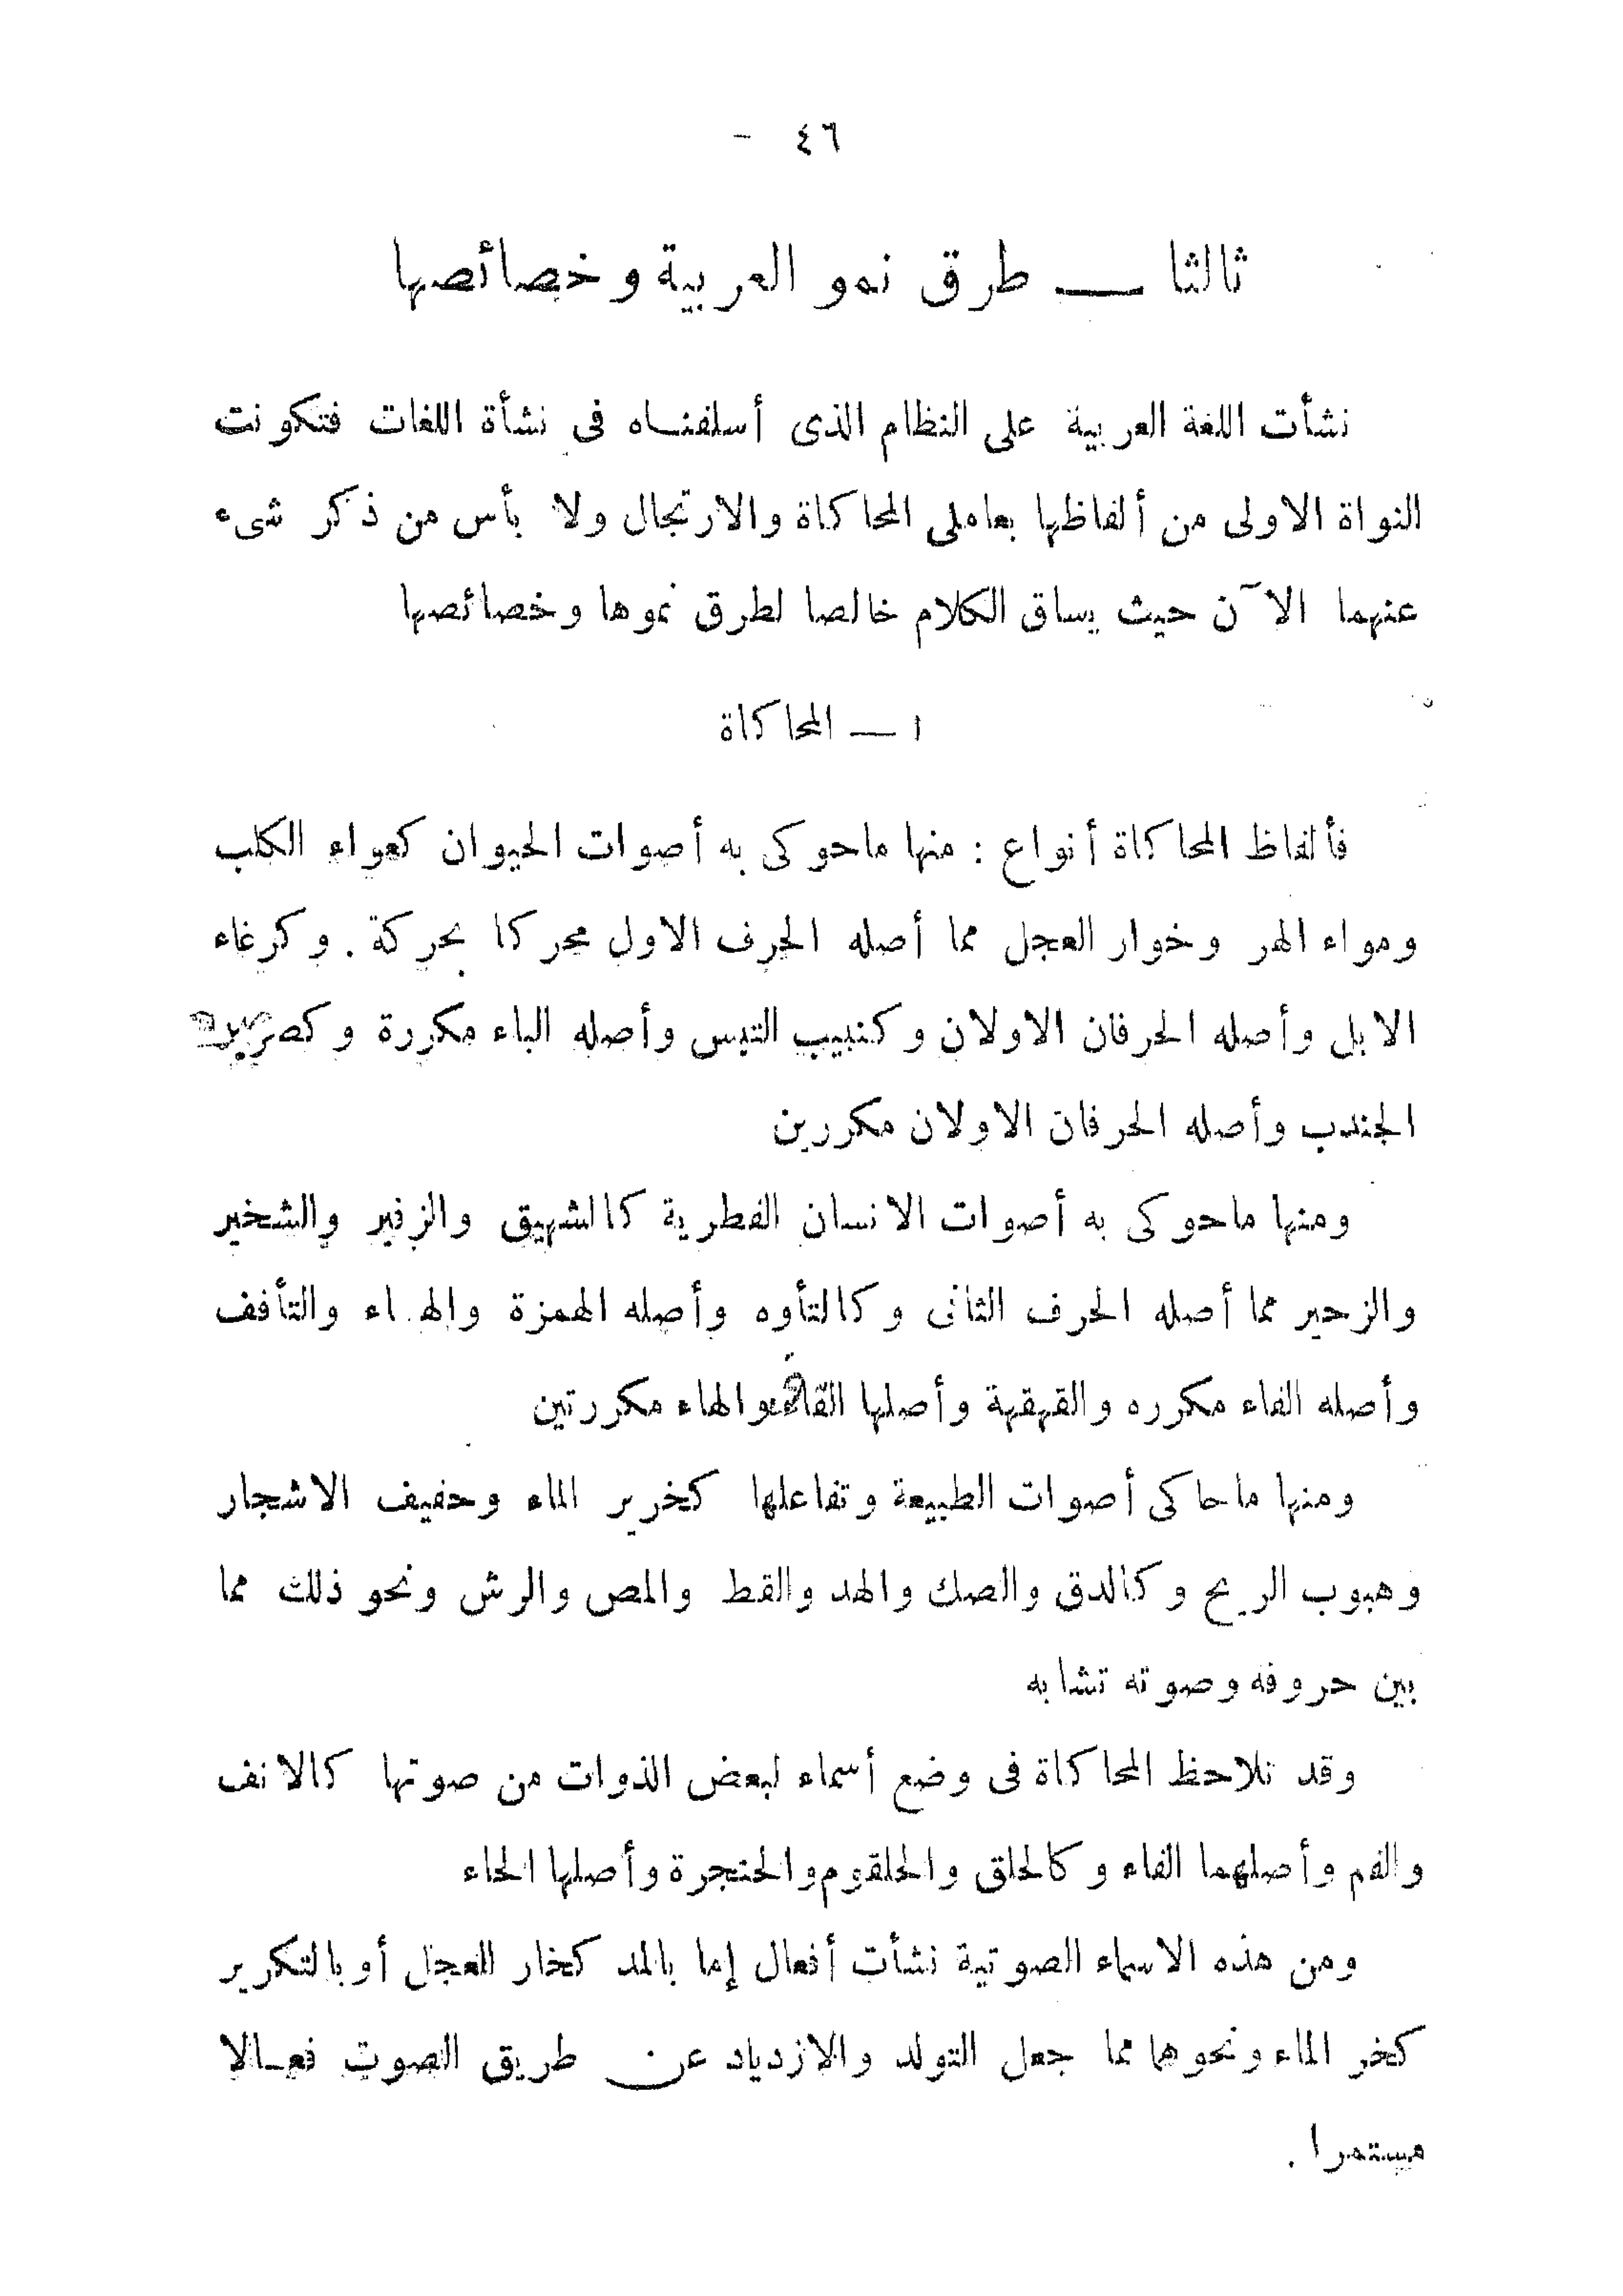 ٤٦ -
ثالثا — طرق نمو العربية وخصائصها
نشأت اللغة العربية على النظام الذى أسلفناه فى نشأة اللغات فتكونت
النواة الاولى من ألفاظها بعاملى المحاكاة والارتجال ولا بأس من ذكر شىء
عنهما الآن حيث يساق الكلام خالصا لطرق نموها وخصائصها
١ — المحاكاة
فألفاظ المحاكاة أنواع : منها ماحوكى به أصوات الحيوان كعواء الكلب
ومواء الهر وخوار العجل مما أصله الحرف الاول محركا بحركة . وكرغاء
الابل وأصله الحرفان الاولان وكنبيب التيس وأصله الباء مكررة
الجندب وأصله الحرفان الاولان مكررين
ومنها ماحوكى به أصوات الانسان الفطرية كالشهيق والزفير والشخير
والزحير مما أصله الحرف الثانى وكالتأوه وأصله الهمزة والهاء والتأفف
وأصله الفاء مكرره والقهقهة وأصلها القاف والهاء مكررتين
ومنها ماحاكى أصوات الطبيعة وتفاعلها كخرير الماء وحفيف الاشجار
وهبوب الريح وكالدق والصك والهد والقط والمص والرش ونحو ذلك مما
بين حروفه وصوته تشابه
وقد تلاحظ المحاكاة فى وضع أسماء لبعض الذوات من صوتها كالانف
والفم وأصلهما الفاء وكالحلق والحلقوم والحنجرة وأصلها الحاء
ومن هذه الاسماء الصوتية نشأت أفعال إما بالمد كخار العجل أو بالتكرير
كخر الماء ونحوهما مما جعل التولد والازدياد عن طريق الصوت فعالا
مستمرا .